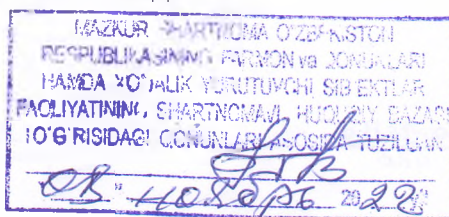 MAZKUR SHARTNOMA O'ZBEKISTON
RESPUBLIKASINING FARMON va QONUNLARI
HAMDA XO'JALIK YURUTUVCHI SUB'EKTLAR
FAOLIYATINING SHARTNOMAVIY HUQUQIY BAZASI
TO'G'RISIDAGI QONUNLARI ASOSIDA TUZILGAN
" ноябрь 2022